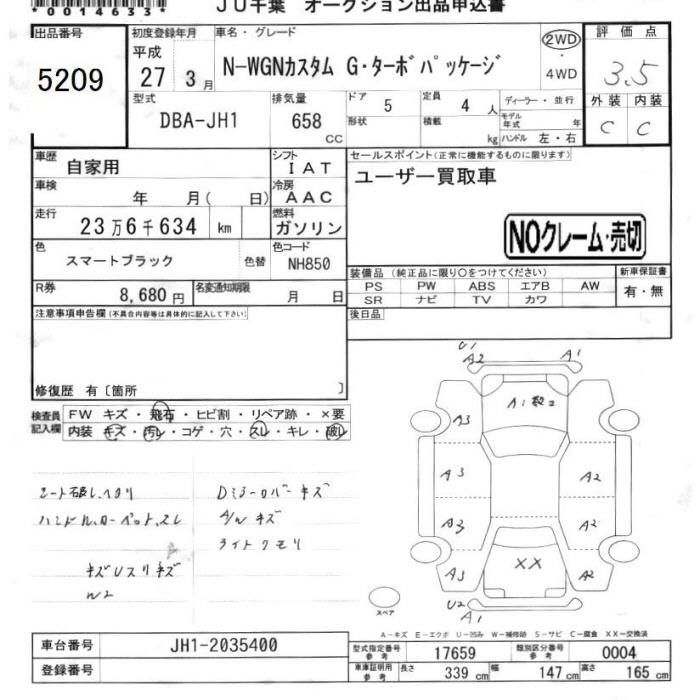 *0014633*
JU千葉 オークション出品申込書
出品番号
5209
初度登録年月
平成
27 3月
車名・グレード
N-WGNカスタム G・ターボパッケージ
2WD
・
4WD
評価点
3.5
外装 内装
C C
型式
DBA-JH1
排気量
658
CC
ドア
5
定員
4 人
形状
積載
kg
ディーラー・並行
モデル年式
年
ハンドル 左・右
車歴
自家用
シフト
IAT
車検
年 月( 日)
冷房
AAC
走行
23万6千634 km
燃料
ガソリン
色
スマートブラック
色替
色コード
NH850
R券
8,680円
名変通知期限
月 日
セールスポイント(正常に機能するものに限ります)
ユーザー買取車
NOクレーム・売切
装備品(純正品に限り○をつけてください)
PS PW ABS エアB AW
SR ナビ TV カワ
新車保証書
有・無
後日品
注意事項申告欄(不具合内容等は具体的に記入して下さい)
修復歴 有〔箇所 〕
検査員
記入欄
FW キズ・飛石・ヒビ割・リペア跡・×要
内装 キズ・汚レ・コゲ・穴・スレ・キレ・破レ
シート破レ、ヘタリ
ハンドル、カーペット、スレ
キズUスリキズ
W2
Dミラーカバーキズ
A/W キズ
ライトクモリ
U1
A2
A1
A1数コ
A3
A3
A2
A3
A2
A3
A2
XX
U2
A1
スペア
A-キズ E-エクボ U-凹み W-補修跡 S-サビ C-腐食 XX-交換済
車台番号
JH1-2035400
登録番号
型式指定番号
参考
17659
類別区分番号
参考
0004
車庫証明用
参考
長さ
339 cm
幅
147 cm
高さ
165 cm